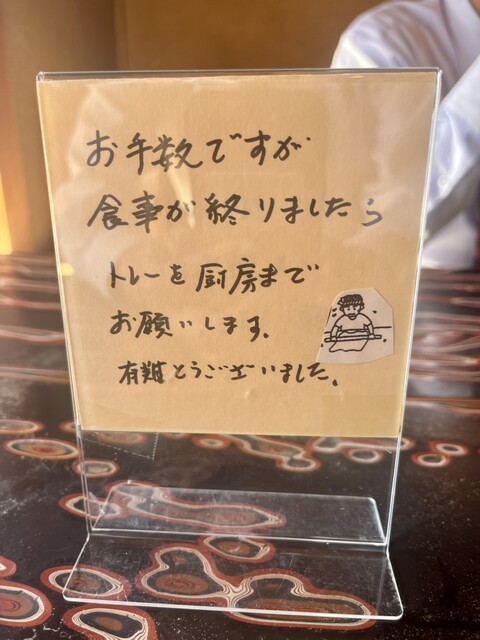 お手数ですが
食事が終りましたら
トレーを厨房まで
お願いします。
有難とうございました。